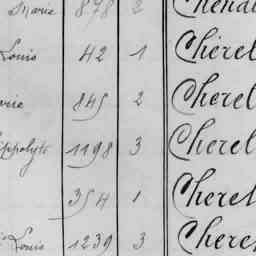 Marie 878 2
Louis 42 1 Chérel
arie 845 2 Cherel
ippolyte 1198 3 Cherel
354 1 Cherel
Louis 1239 3 Cherel